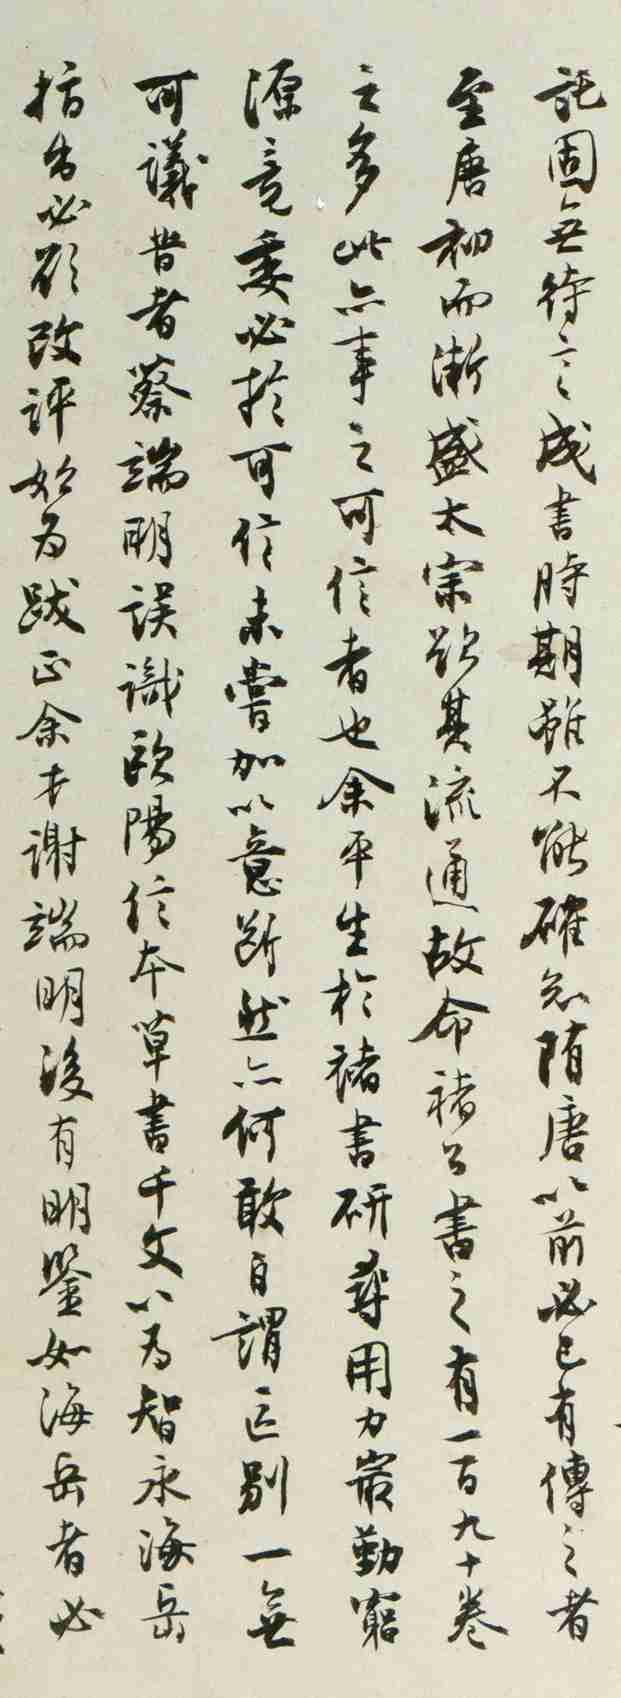 託固無待言成書時期雖不能確知隋唐以前必已有傳之者
至唐初而漸盛太宗欲其流通故命褚公書之有一百九十卷
之多此亦事之可信者也余平生於褚書研尋用力最勤窮
源竟委必於可信未嘗加以意斷然亦何敢自謂區別一無
可議昔者蔡端明誤識歐陽信本草書千文以為智永海岳
指出必欲改評始為跋正余才謝端明後有明鑒如海岳者必